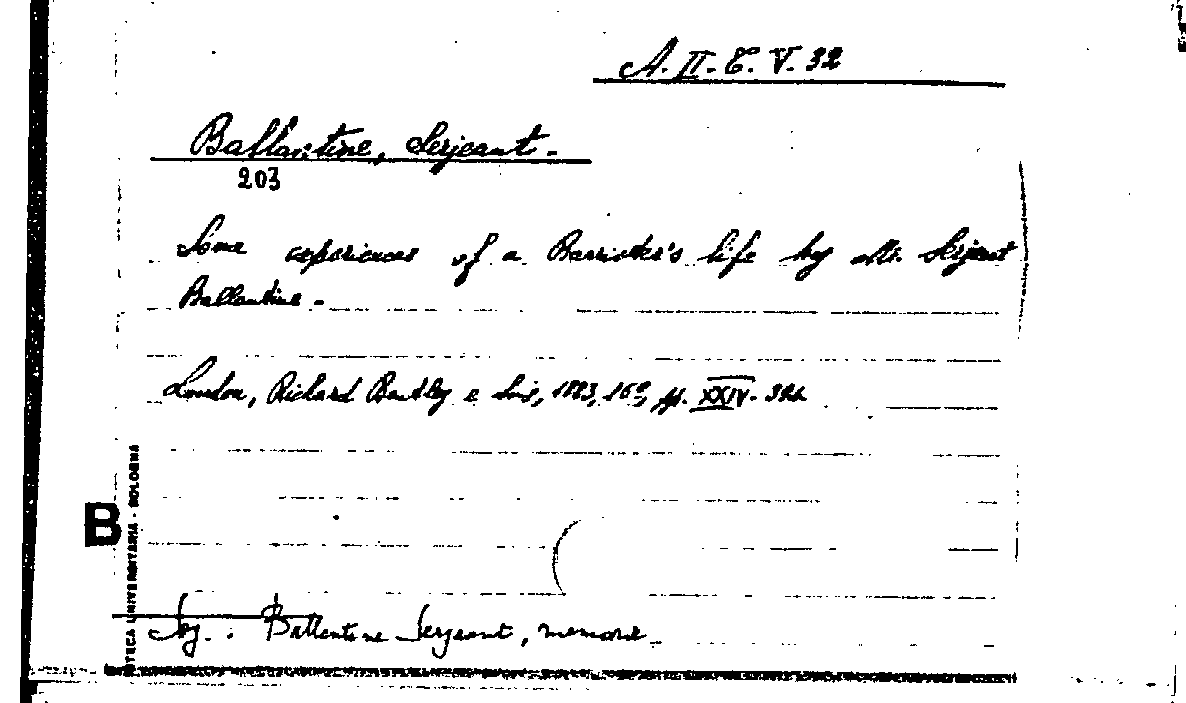 A. II. C. V. 32
Ballantine, Serjeant.
203
Some experiences of a Barrister's life by Mr. Serjeant
Ballantine.
London, Richard Bentley e Son, 1883, 16°, pp. XXIV. 
B
TECA UNIVERSITARIA - BOLOGNA
Sog. : Ballentine Serjeant, memorie